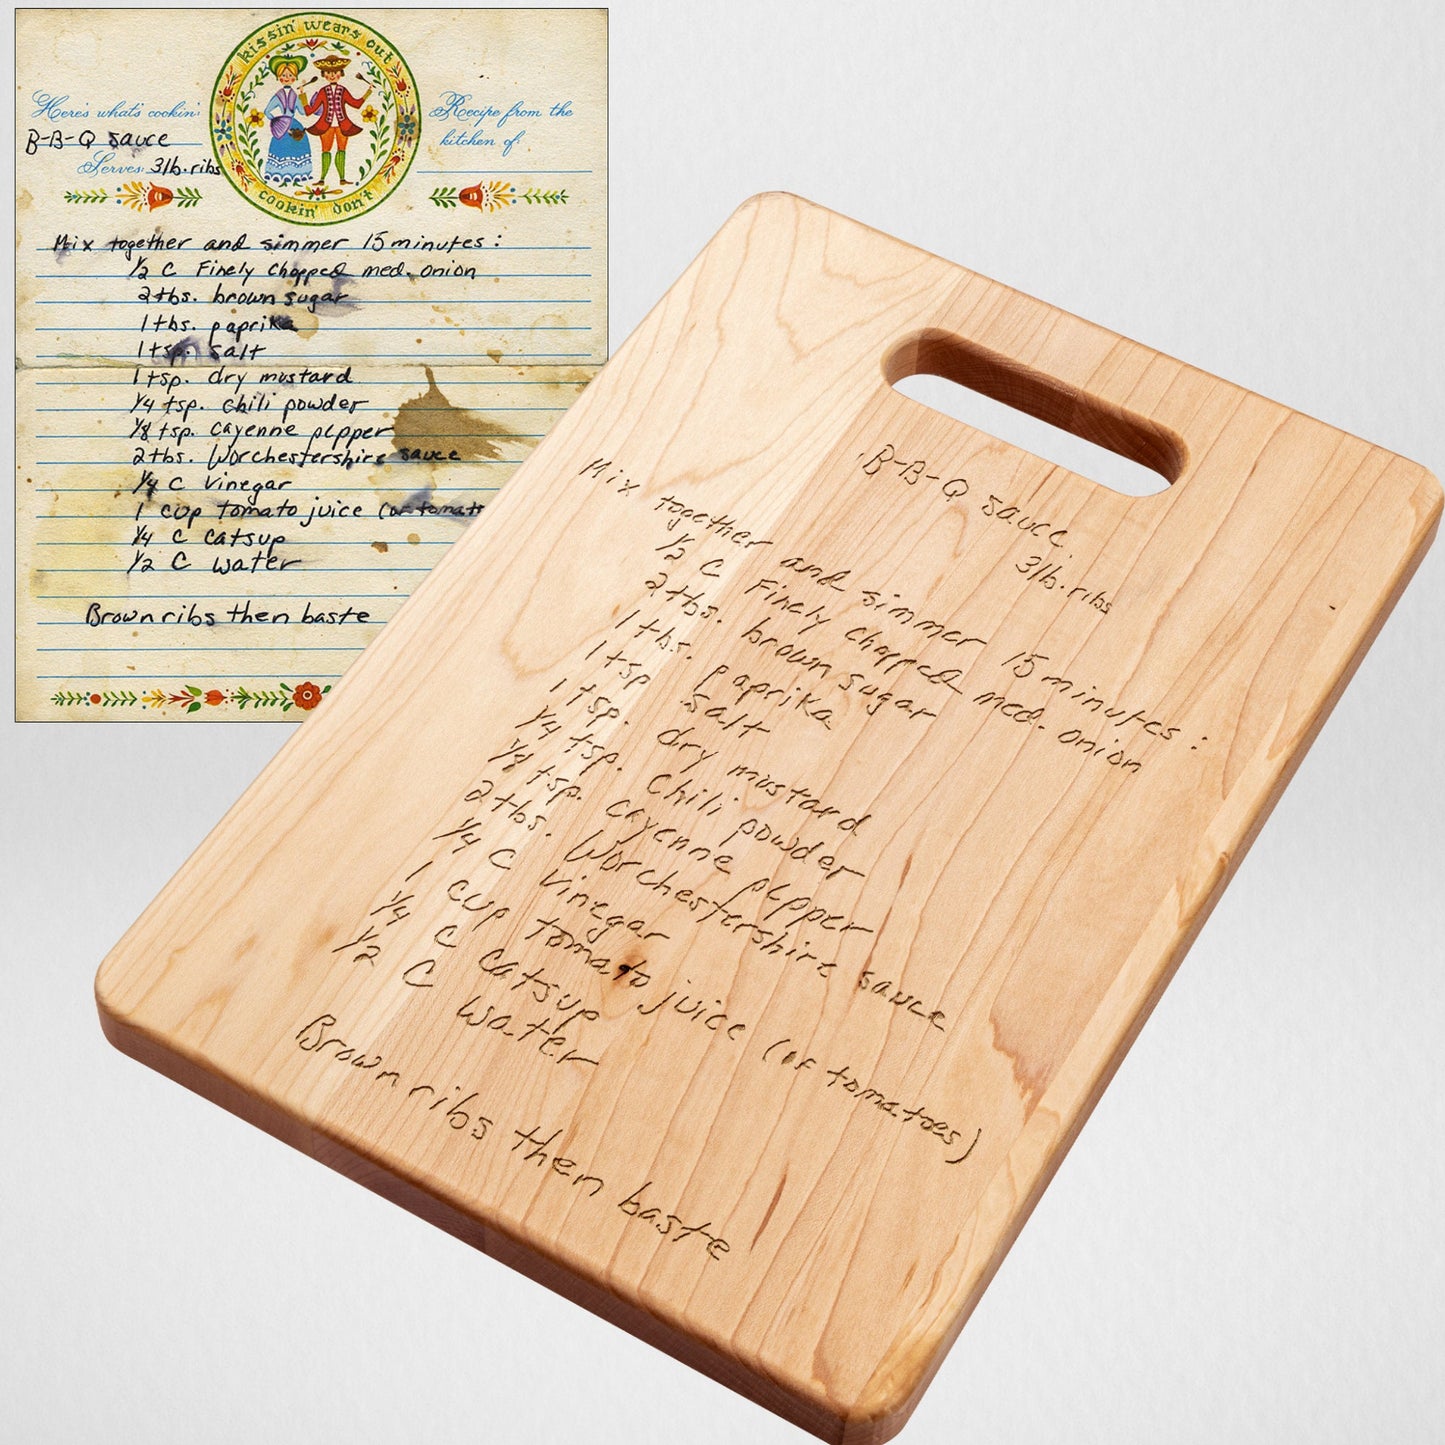 kissin' wears out
cookin' don't
Here's what's cookin'
B-B-Q sauce
Serves 3lb. ribs
Recipe from the
kitchen of
Mix together and simmer 15 minutes :
1/2 C Finely Chopped med. onion
2 tbs. brown sugar
1 tbs. paprika
1 tsp. salt
1 tsp. dry mustard
1/4 tsp. chili powder
1/8 tsp. cayenne pepper
2 tbs. Worchestershire sauce
1/4 C Vinegar
1 cup tomato juice (or tomato
1/4 C catsup
1/2 C water
Brown ribs then baste
B-B-Q sauce
3lb. ribs
Mix together and simmer 15 minutes :
1/2 C Finely Chopped med. onion
2 tbs. brown sugar
1 tbs. paprika
1 tsp. salt
1 tsp. dry mustard
1/4 tsp. Chili powder
1/8 tsp. cayenne pepper
2 tbs. Worchestershire sauce
1/4 C Vinegar
1 cup tomato juice (or tomatoes)
1/4 C catsup
1/2 C water
Brown ribs then baste